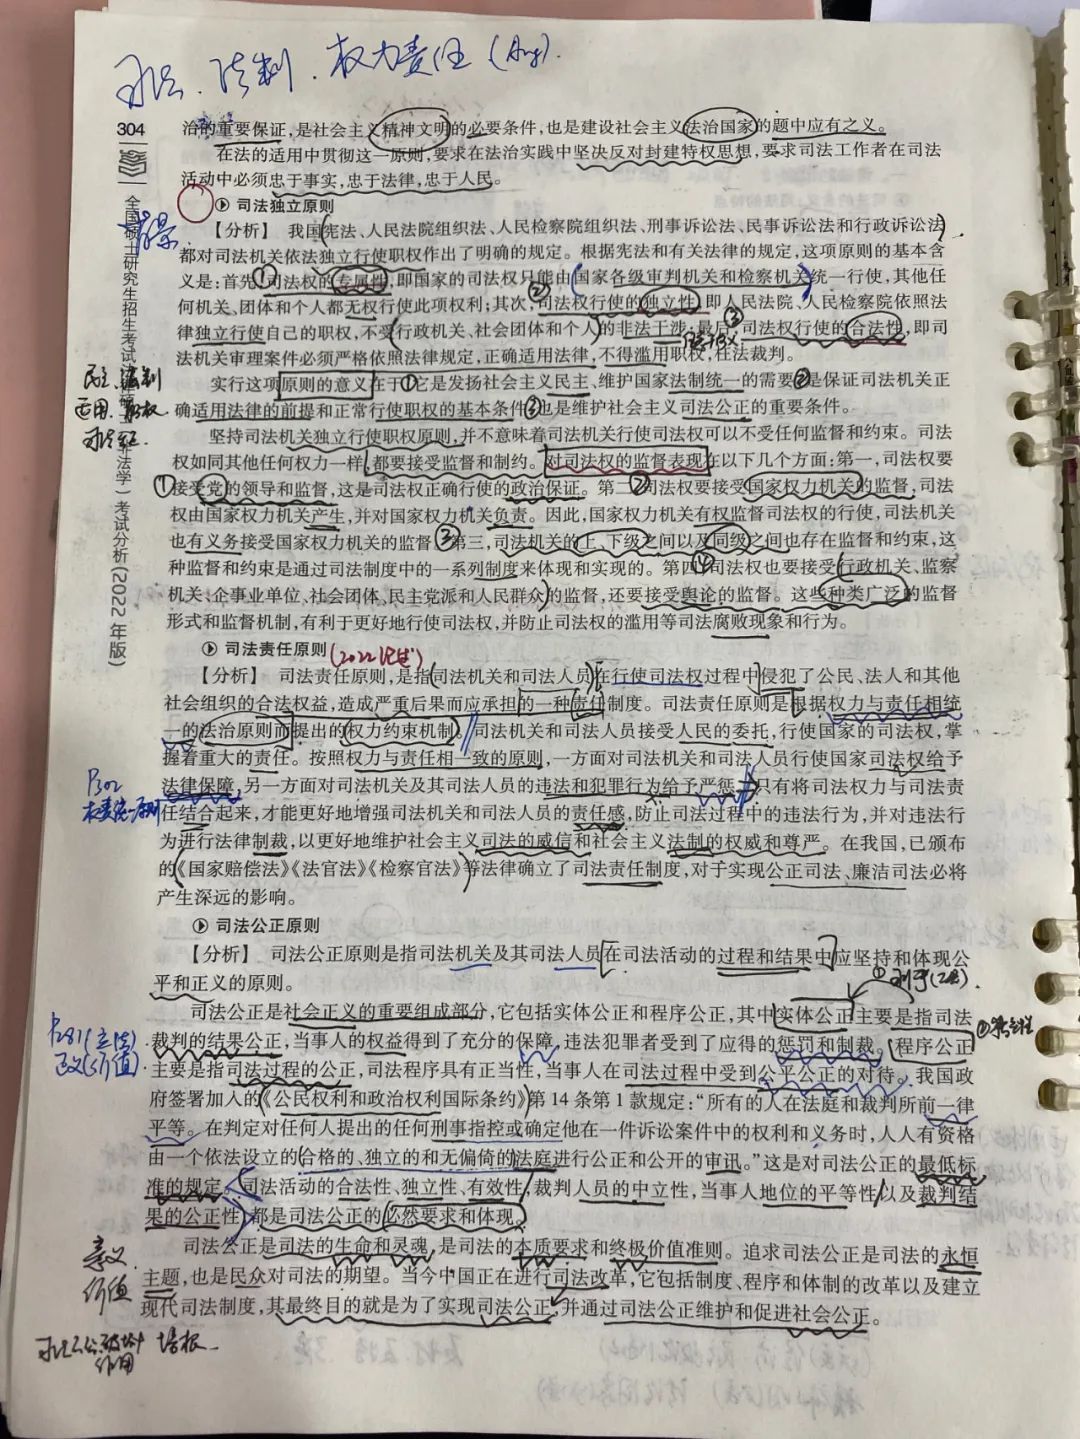 司法、法制、权力责任
304
治的重要保证，是社会主义精神文明的必要条件，也是建设社会主义法治国家的题中应有之义。
在法的适用中贯彻这一原则，要求在法治实践中坚决反对封建特权思想，要求司法工作者在司法
活动中必须忠于事实，忠于法律，忠于人民。
司法独立原则
【分析】 我国宪法、人民法院组织法、人民检察院组织法、刑事诉讼法、民事诉讼法和行政诉讼法
都对司法机关依法独立行使职权作出了明确的规定。根据宪法和有关法律的规定，这项原则的基本含
义是：首先，司法权的专属性，即国家的司法权只能由国家各级审判机关和检察机关统一行使，其他任
何机关、团体和个人都无权行使此项权利；其次，司法权行使的独立性，即人民法院、人民检察院依照法
律独立行使自己的职权，不受行政机关、社会团体和个人的非法干涉；最后，司法权行使的合法性，即司
法机关审理案件必须严格依照法律规定，正确适用法律，不得滥用职权，枉法裁判。
实行这项原则的意义在于：①它是发扬社会主义民主、维护国家法制统一的需要；②是保证司法机关正
确适用法律的前提和正常行使职权的基本条件；③也是维护社会主义司法公正的重要条件。
坚持司法机关独立行使职权原则，并不意味着司法机关行使司法权可以不受任何监督和约束。司法
权如同其他任何权力一样，都要接受监督和制约。对司法权的监督表现在以下几个方面：第一，司法权要
接受党的领导和监督，这是司法权正确行使的政治保证。第二，司法权要接受国家权力机关的监督，司法
权由国家权力机关产生，并对国家权力机关负责。因此，国家权力机关有权监督司法权的行使，司法机关
也有义务接受国家权力机关的监督。第三，司法机关的上、下级之间以及同级之间也存在监督和约束，这
种监督和约束是通过司法制度中的一系列制度来体现和实现的。第四，司法权也要接受行政机关、监察
机关、企事业单位、社会团体、民主党派和人民群众的监督，还要接受舆论的监督。这些种类广泛的监督
形式和监督机制，有利于更好地行使司法权，并防止司法权的滥用等司法腐败现象和行为。
司法责任原则
【分析】 司法责任原则，是指司法机关和司法人员在行使司法权过程中侵犯了公民、法人和其他
社会组织的合法权益，造成严重后果而应承担的一种责任制度。司法责任原则是根据权力与责任相统
一的法治原则而提出的权力约束机制。司法机关和司法人员接受人民的委托，行使国家的司法权，掌
握着重大的责任。按照权力与责任相一致的原则，一方面对司法机关和司法人员行使国家司法权给予
法律保障，另一方面对司法机关及其司法人员的违法和犯罪行为给予严惩。只有将司法权力与司法责
任结合起来，才能更好地增强司法机关和司法人员的责任感，防止司法过程中的违法行为，并对违法行
为进行法律制裁，以更好地维护社会主义司法的威信和社会主义法制的权威和尊严。在我国，已颁布
的《国家赔偿法》《法官法》《检察官法》等法律确立了司法责任制度，对于实现公正司法、廉洁司法必将
产生深远的影响。
司法公正原则
【分析】 司法公正原则是指司法机关及其司法人员在司法活动的过程和结果中应坚持和体现公
平和正义的原则。
司法公正是社会正义的重要组成部分，它包括实体公正和程序公正，其中实体公正主要是指司法
裁判的结果公正，当事人的权益得到了充分的保障，违法犯罪者受到了应得的惩罚和制裁。程序公正
主要是指司法过程的公正，司法程序具有正当性，当事人在司法过程中受到公平公正的对待。我国政
府签署加入的《公民权利和政治权利国际条约》第14条第1款规定：“所有的人在法庭和裁判所前一律
平等。在判定对任何人提出的任何刑事指控或确定他在一件诉讼案件中的权利和义务时，人人有资格
由一个依法设立的合格的、独立的和无偏倚的法庭进行公正和公开的审讯。”这是对司法公正的最低标
准的规定。司法活动的合法性、独立性、有效性，裁判人员的中立性，当事人地位的平等性以及裁判结
果的公正性，都是司法公正的必然要求和体现。
司法公正是司法的生命和灵魂，是司法的本质要求和终极价值准则。追求司法公正是司法的永恒
主题，也是民众对司法的期望。当今中国正在进行司法改革，它包括制度、程序和体制的改革以及建立
现代司法制度，其最终目的就是为了实现司法公正，并通过司法公正维护和促进社会公正。
全国硕士研究生招生考试法律硕士（非法学）考试分析（2022年版）
背景
民主、法制
适用、职权
司法公正
P302
P281（立法）
正义（价值）
意义
价值
作用